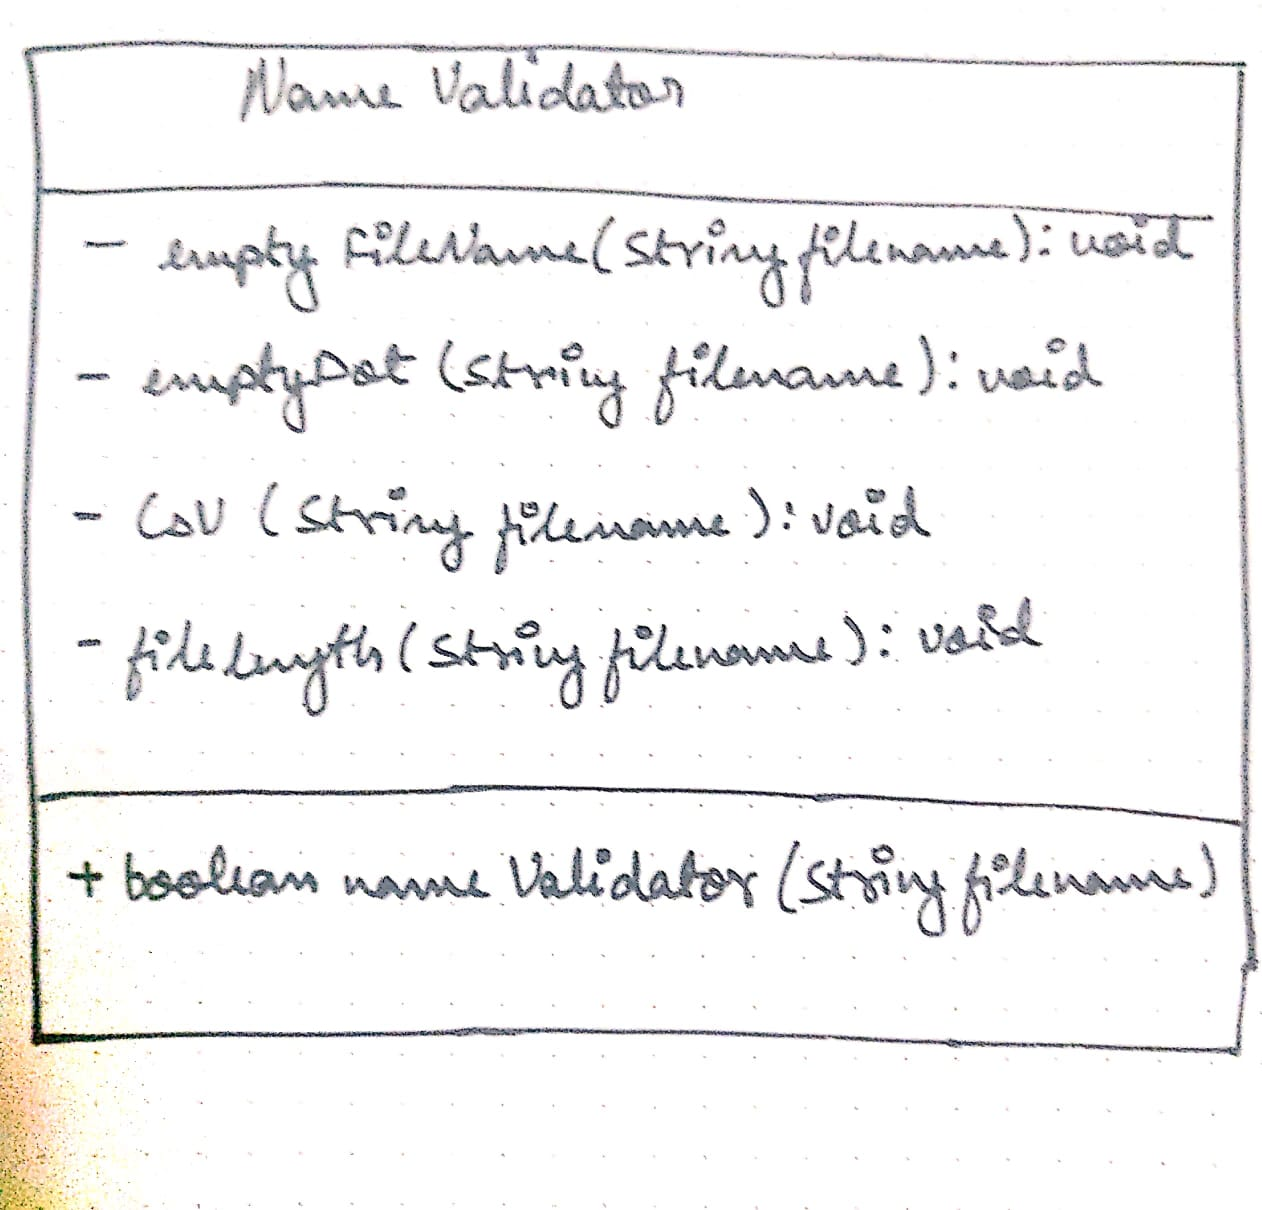 Name Validator
- empty FileName(String filename): void
- emptyDot (String filename): void
- CSV (String filename): void
- filelength(String filename): void
+ boolean name Validator (String filename)